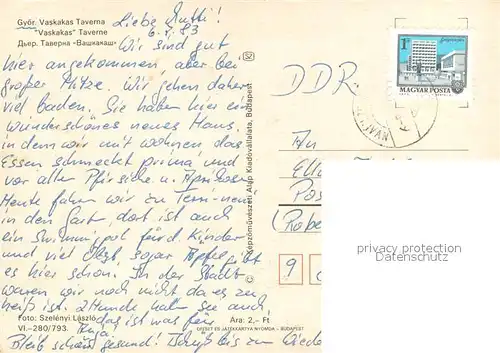 Győr. Vaskakas Taverna
"Vaskakas" Taverne
Дьер. Таверна «Вашкакаш»
Liebe Mutti!
6.7.83
Wir sind gut
hier angekommen, aber bei
großer Hitze. Wir gehen daher
viel baden. Sie haben hier ein
wunderschönes neues Haus,
in dem wir mit wohnen, das
Essen schmeckt prima und
vor allem Pfirsiche u. Aprikosen.
Heute fahren wir zu
in den Garten, dort ist auch
ein Swimmingpool für d. Kinder
und viel Obst, sogar Äpfel gibt
es hier schon. In der Stadt
waren wir noch nicht da es zu
heiß ist. 2 Hunde haben sie auch,
das ist was für
Bleib schön gesund! Tschüß bis zum Wieder
Foto: Szelényi László
VI.-280/793.
Ára: 2,- Ft
OFFSET ÉS JÁTÉKKÁRTYA NYOMDA - BUDAPEST
Képzőművészeti Alap Kiadóvállalata, Budapest
1 Ft
MAGYAR POSTA
DDR
An
9
privacy protection
Datenschutz